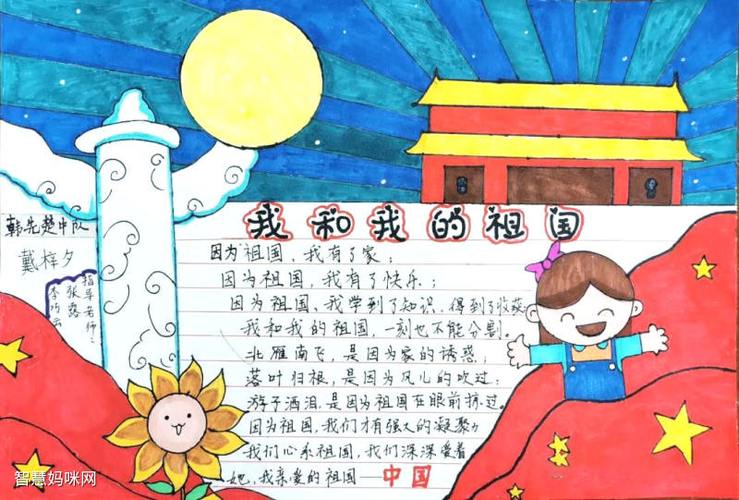 我和我的祖国
韩先楚中队
戴梓夕
指导老师：
张露
李巧云
因为祖国，我有了家；
因为祖国，我有了快乐；
因为祖国、我学到了知识、得到了收获
我和我的祖国，一刻也不能分割。
北雁南飞，是因为家的诱惑；
落叶归根，是因为风儿的吹过；
游子洒泪，是因为祖国在眼前挤过。
因为祖国，我们才有强大的凝聚力
我们心系祖国，我们深深爱着
她，我亲爱的祖国——中国
智慧妈咪网